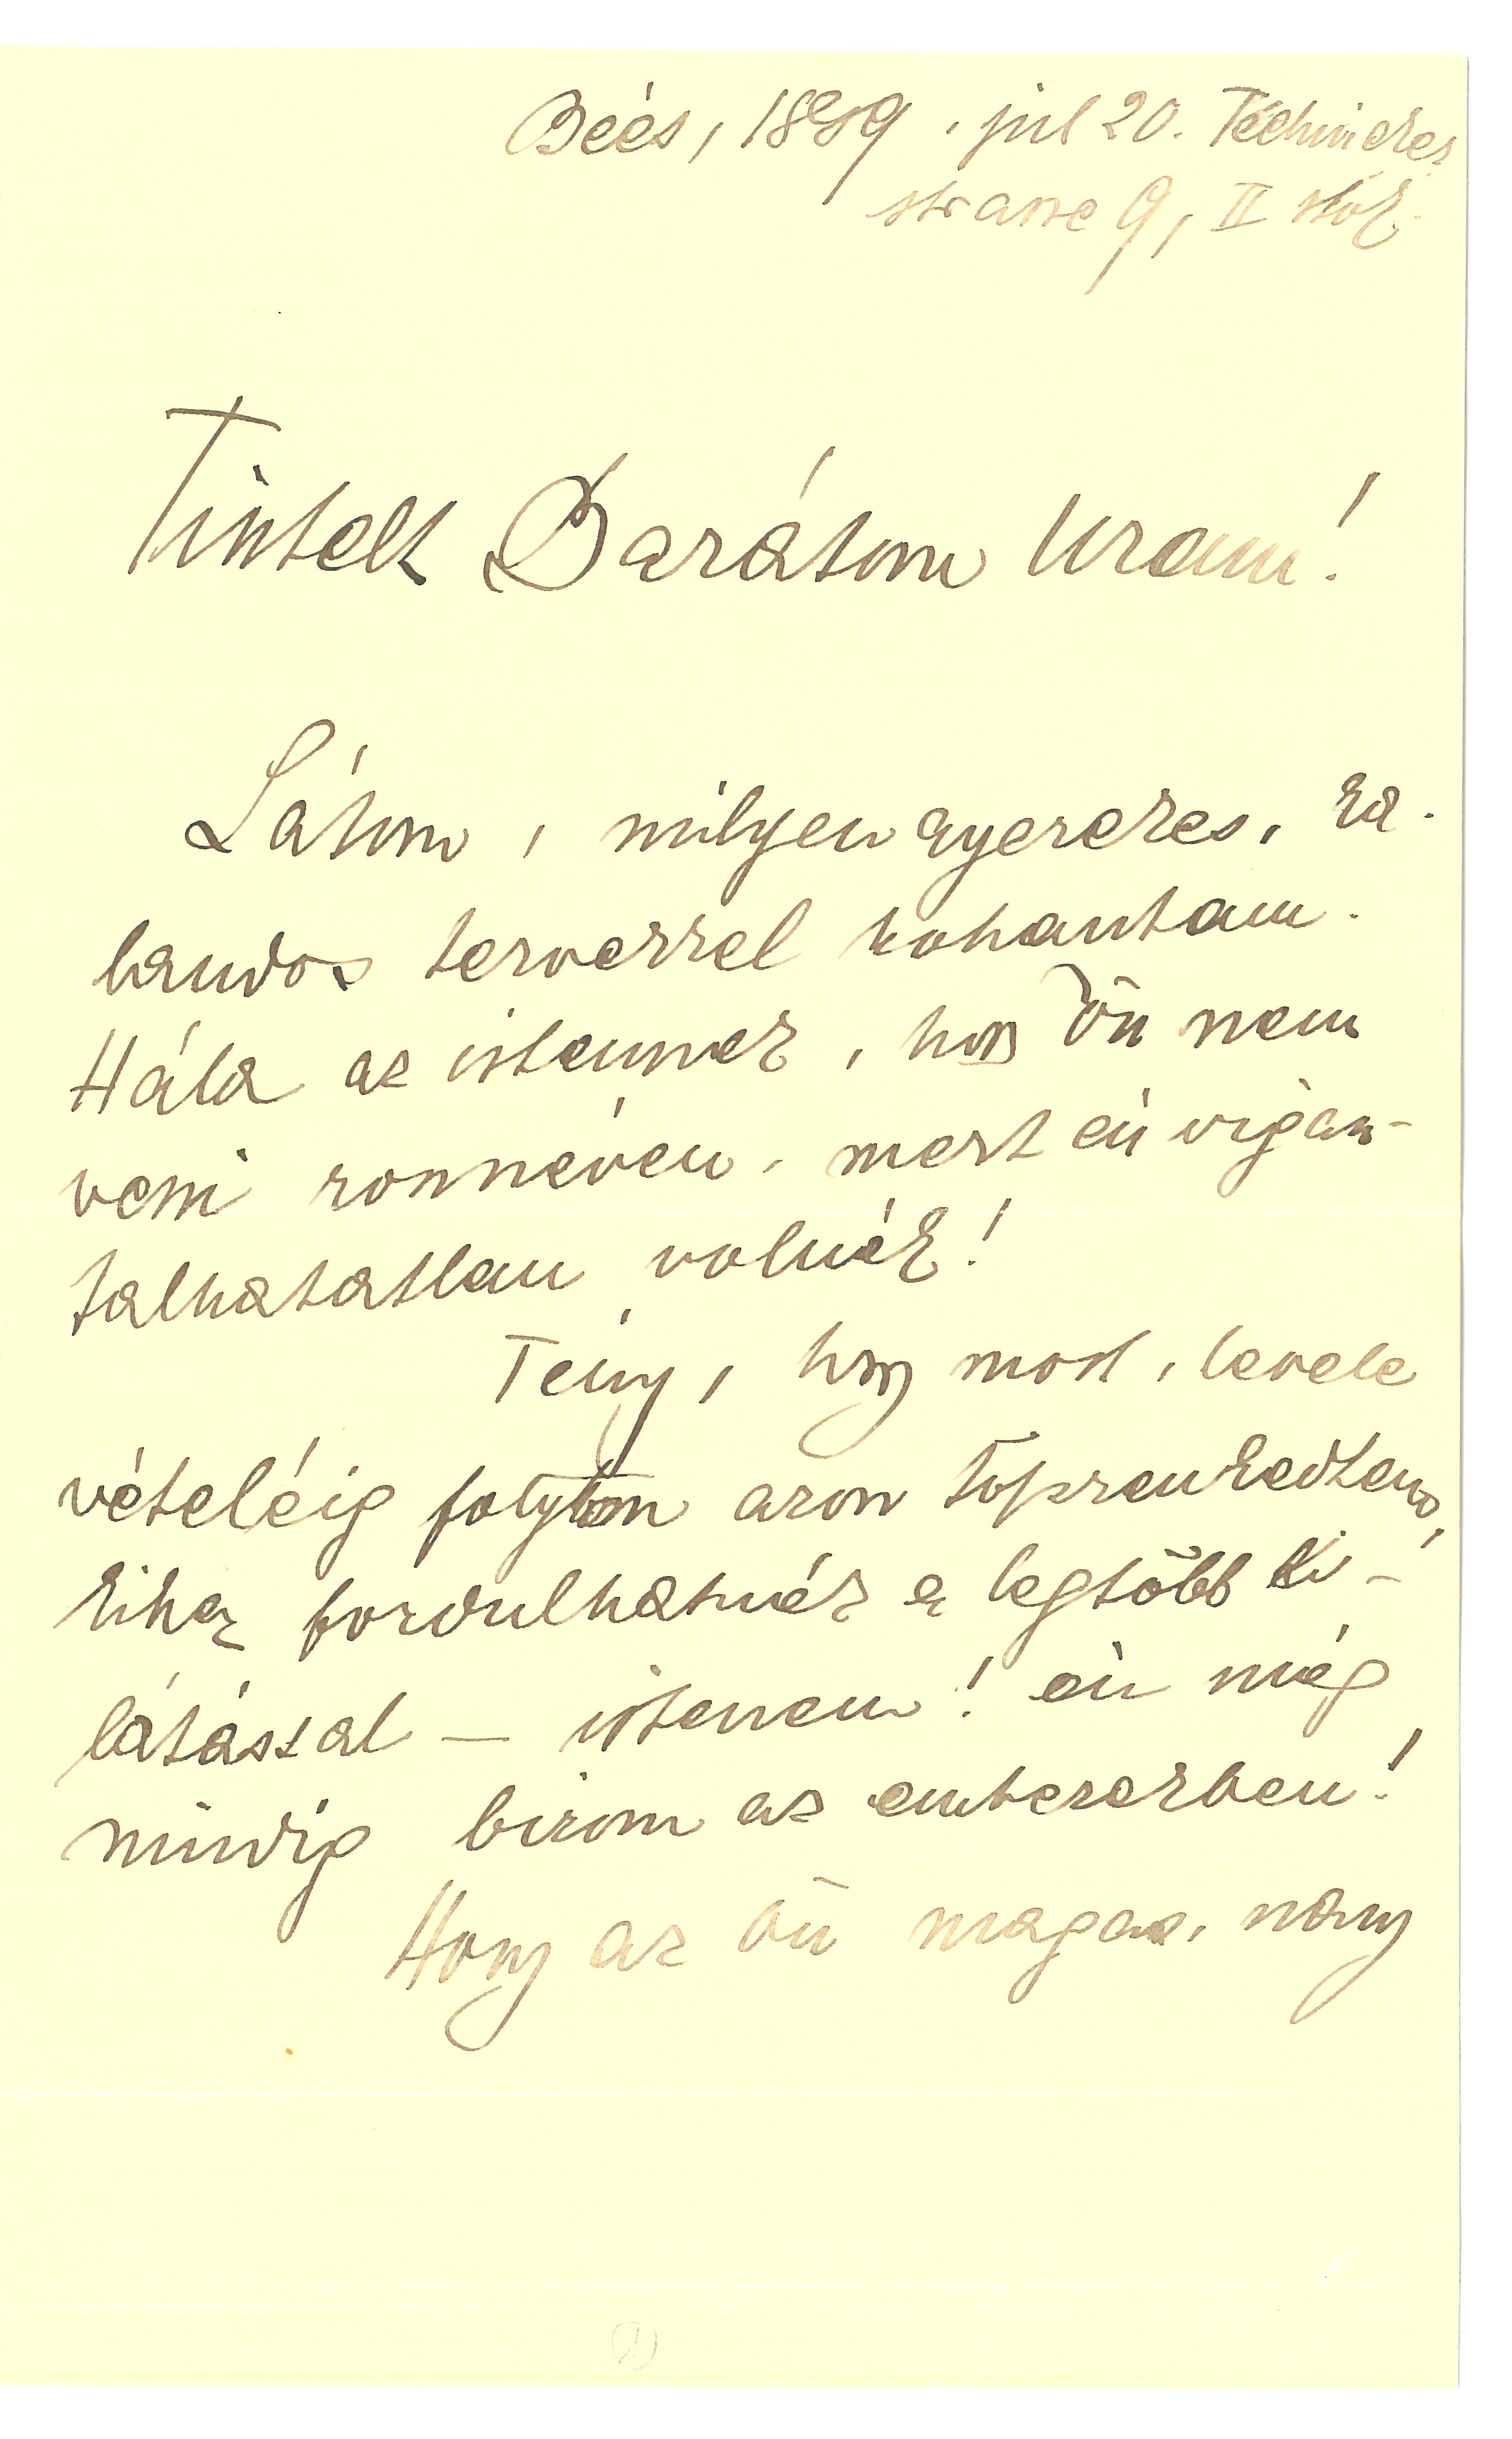 Bécs, 1889. júl 20. Technicker
strasse 9, II stók.
Tisztelt Barátom Uram!
Látom, milyen gyerekes, ka-
landos tervekkel rohantam.
Hála az istennek, hogy Ön nem
veszi rossznéven, mert én vigasz-
talhatatlan volnék!
Tény, hogy most, levele
vételéig folyton azon töprenkedtem,
kihez fordulhatnék a legtöbb ki-
látással — istenem! én még
mindig bízom az emberekben!
Hogy az ön magas, nagy